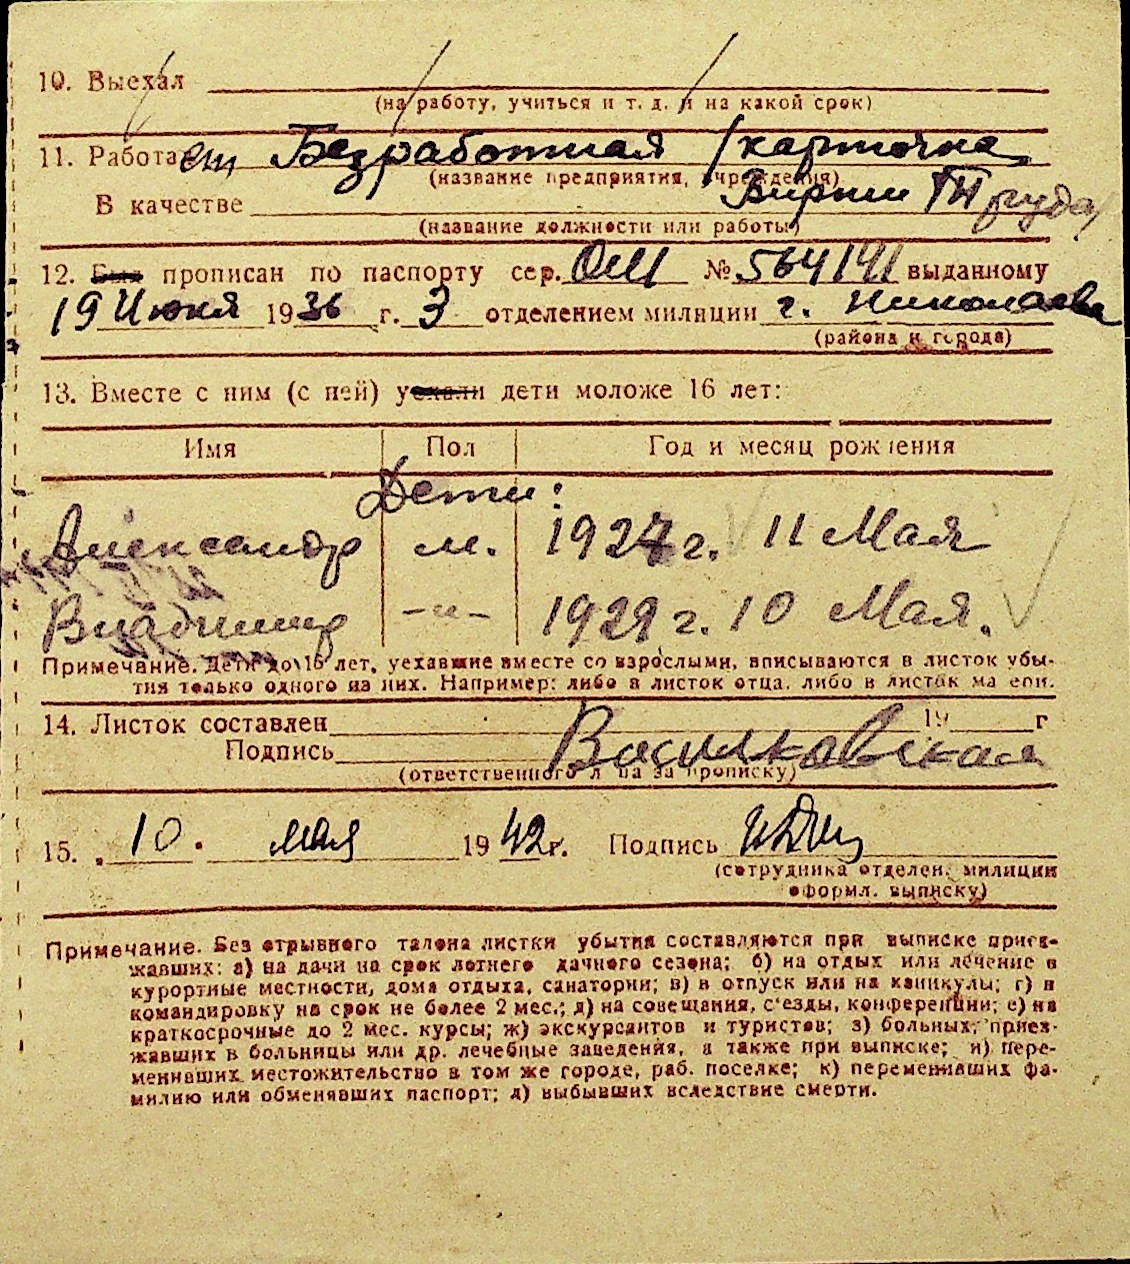 10. Выехал
(на работу, учиться и т. д. и на какой срок)
11. Работает Безработная /карточка
(название предприятия, учреждения)
Биржи Труда/
В качестве
(название должности или работы)
12. Был прописан по паспорту сер. № 564191 выданному
19 Июня 1936 г. 3 отделением милиции г. Николаева
(района и города)
13. Вместе с ним (с ней) уехали дети моложе 16 лет:
Имя Пол Год и месяц рождения
Дети:
Александр м. 1927 г. 11 Мая
Владимир -"- 1929 г. 10 Мая.
Примечание. Дети до 16 лет, уехавшие вместе со взрослыми, вписываются в листок убы-
тия только одного из них. Например: либо в листок отца, либо в листок матери.
14. Листок составлен 19 г
Подпись Василковская
(ответственного лица за прописку)
15. 10. мая 1942 г. Подпись
(сотрудника отделен. милиции
оформл. выписку)
Примечание. Без отрывного талона листки убытия составляются при выписке приез-
жавших: а) на дачи на срок летнего дачного сезона; б) на отдых или лечение в
курортные местности, дома отдыха, санатории; в) в отпуск или на каникулы; г) в
командировку на срок не более 2 мес.; д) на совещания, с'езды, конференции; е) на
краткосрочные до 2 мес. курсы; ж) экскурсантов и туристов; з) больных, приез-
жавших в больницы или др. лечебные заведения, а также при выписке; и) пере-
менивших местожительство в том же городе, раб. поселке; к) переменивших фа-
милию или обменявших паспорт; л) выбывших вследствие смерти.